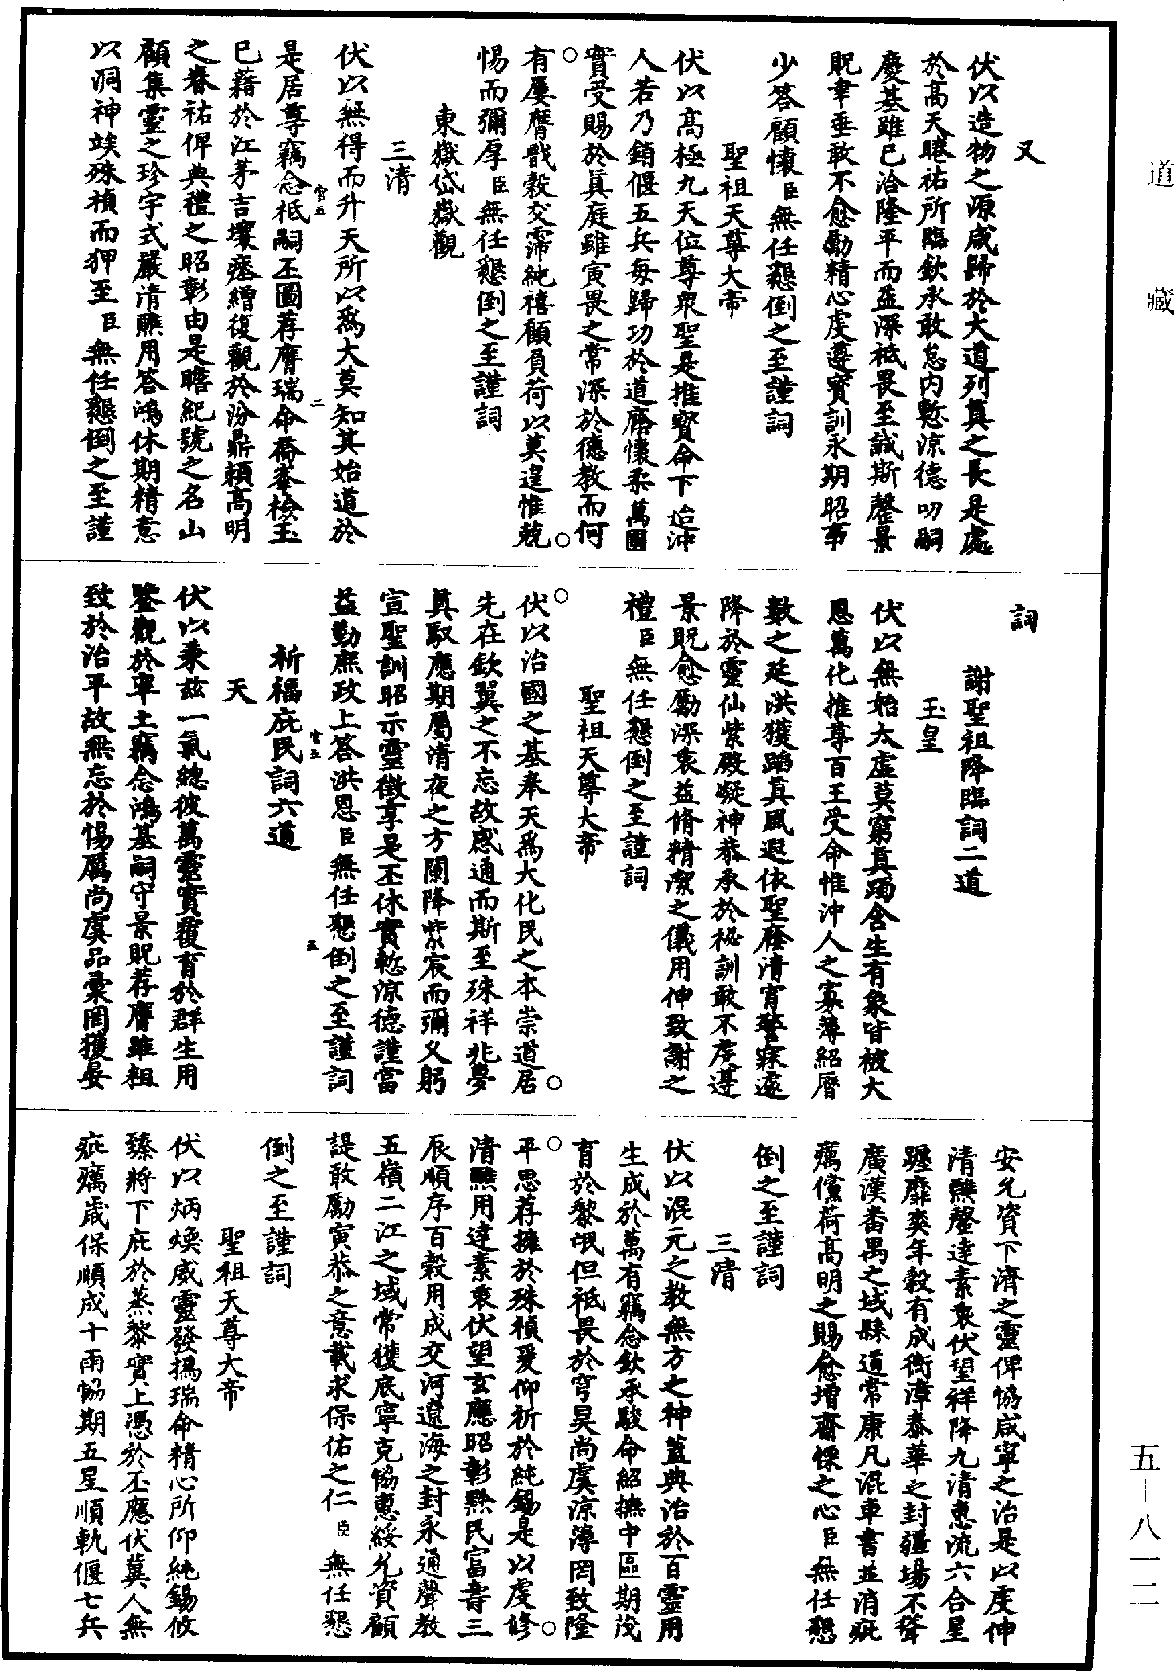 道藏
又
伏以造物之源咸歸於大道列真之長是處
於高天睠祐所臨欽承敢怠內慙涼德叨嗣
慶基雖已洽隆平而益深祗畏至誠斯罄景
貺聿垂敢不愈勵精心虔遵寶訓永期昭事
少答顧懷臣無任懇倒之至謹詞
聖祖天尊大帝
伏以高極九天位尊眾聖是推寶命下迨沖
人若乃銷偃五兵每歸功於道廕懷柔萬國
實受賜於真庭雖寅畏之常深於德教而何
有屢膺戩穀交霈純禧顧負荷以莫遑惟兢
惕而彌厚臣無任懇倒之至謹詞
東嶽岱嶽觀
三清
伏以無得而升天所以為大莫知其始道於
是居尊竊念祗嗣丕圖荐膺瑞命喬峯檢玉
已藉於江茅吉壤瘞繒復觀於汾鼎賴高明
之眷祐俾典禮之昭彰由是瞻紀號之名山
顧集靈之珍宇式嚴清醮用答鴻休期精意
以洞神竢殊禎而狎至臣無任懇倒之至謹
詞
謝聖祖降臨詞二道
玉皇
伏以無始太虛莫窮真躅含生有象皆被大
恩萬化推尊百王受命惟沖人之寡薄紹曆
數之延洪獲蹈真風遐依聖廕清宵警寐遽
降於靈仙紫殿凝神恭承於祕訓敢不虔遵
景貺愈勵深衷益脩精潔之儀用伸致謝之
禮臣無任懇倒之至謹詞
聖祖天尊大帝
伏以治國之基奉天為大化民之本崇道居
先在欽翼之不忘故感通而斯至殊祥兆夢
真馭應期屬清夜之方闌降紫宸而彌乂躬
宣聖訓昭示靈徵享是丕休實慙涼德謹當
益勤庶政上答洪恩臣無任懇倒之至謹詞
祈福庇民詞六道
天
伏以秉茲一氣總彼萬靈實覆育於群生用
鑒觀於率土竊念鴻基嗣守景貺荐膺雖粗
致於治平故無忘於惕厲尚虞品彙罔獲晏
安允資下濟之靈俾協咸寧之治是以虔伸
清醮罄達素衷伏望祥降九清惠流六合星
躔靡爽年穀有成衡漳泰華之封疆埸不聳
廣漢番禺之域縣道常康凡混車書並消疵
癘儻荷高明之賜愈增齋慄之心臣無任懇
倒之至謹詞
三清
伏以混元之教無方之神蓋典治於百靈用
生成於萬有竊念欽承駿命紹撫中區期茂
育於黎氓但祗畏於穹昊尚虞涼薄罔致隆
平思荐擁於殊禎爰仰祈於純錫是以虔修
清醮用達素衷伏望玄應昭彰黔民富壽三
辰順序百穀用成交河遼海之封永通聲教
五嶺二江之域常獲底寧克協惠綏允資顧
諟敢勵寅恭之意載求保佑之仁臣無任懇
倒之至謹詞
聖祖天尊大帝
伏以炳煥威靈發揮瑞命精心所仰純錫攸
臻將下庇於蒸黎實上憑於丕應伏冀人無
疵癘歲保順成十雨協期五星順軌偃七兵
五－八一二